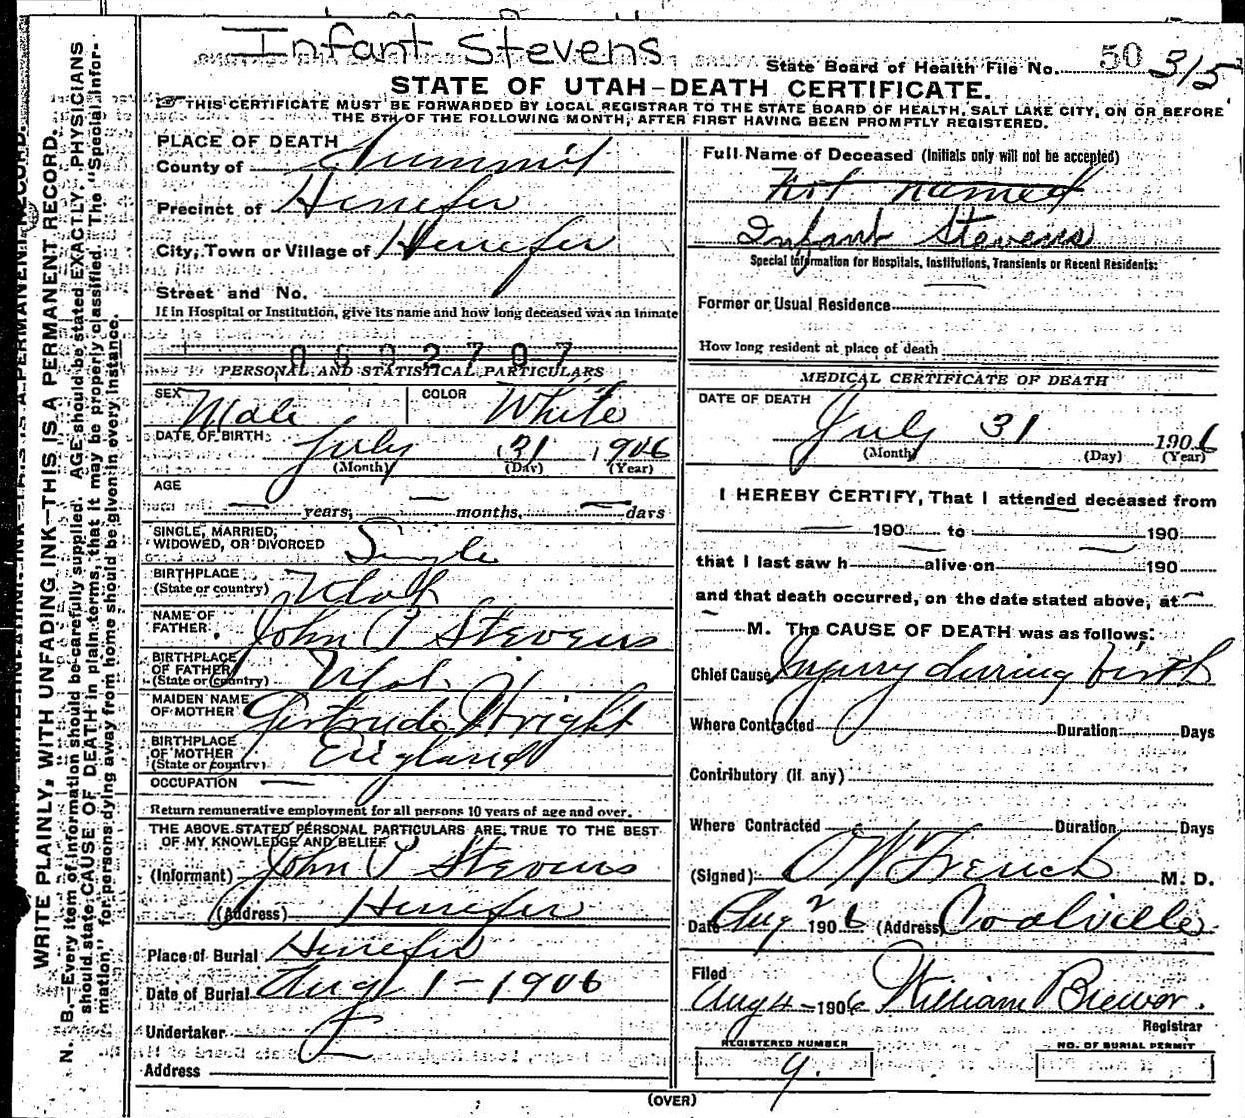 Infant Stevens
State Board of Health File No. 50 315
STATE OF UTAH-DEATH CERTIFICATE.
THIS CERTIFICATE MUST BE FORWARDED BY LOCAL REGISTRAR TO THE STATE BOARD OF HEALTH, SALT LAKE CITY, ON OR BEFORE
THE 5TH OF THE FOLLOWING MONTH, AFTER FIRST HAVING BEEN PROMPTLY REGISTERED.
PLACE OF DEATH
County of Summit
Precinct of Henefer
City, Town or Village of Henefer
Street and No.
If in Hospital or Institution, give its name and how long deceased was an inmate
0692707
PERSONAL AND STATISTICAL PARTICULARS
SEX Male COLOR White
DATE OF BIRTH July 31 1906
(Month) (Day) (Year)
AGE
— years, — months, — days
SINGLE, MARRIED,
WIDOWED, OR DIVORCED Single
BIRTHPLACE
(State or country) Utah
NAME OF
FATHER John P Stevens
BIRTHPLACE
OF FATHER
(State or country) Utah
MAIDEN NAME
OF MOTHER Gertrude Wright
BIRTHPLACE
OF MOTHER
(State or country) England
OCCUPATION —
Return remunerative employment for all persons 10 years of age and over.
THE ABOVE STATED PERSONAL PARTICULARS ARE TRUE TO THE BEST
OF MY KNOWLEDGE AND BELIEF
(Informant) John P Stevens
(Address) Henefer
Place of Burial Henefer
Date of Burial Aug 1-1906
Undertaker
Address
Full Name of Deceased (Initials only will not be accepted)
Not named
Infant Stevens
Special Information for Hospitals, Institutions, Transients or Recent Residents:
Former or Usual Residence
How long resident at place of death
MEDICAL CERTIFICATE OF DEATH
DATE OF DEATH
July 31 1906
(Month) (Day) (Year)
I HEREBY CERTIFY, That I attended deceased from
— 190 to — 190
that I last saw h alive on — 190
and that death occurred, on the date stated above, at —
— M. The CAUSE OF DEATH was as follows:
Chief Cause Injury during birth
Where Contracted Duration Days
Contributory (if any)
Where Contracted Duration Days
(Signed) O W French M. D.
Date Aug 2 1906 (Address) Coalville
Filed
Aug 4-1906 William Brewer.
Registrar
REGISTERED NUMBER
9.
NO. OF BURIAL PERMIT
(OVER)
WRITE PLAINLY, WITH UNFADING INK—THIS IS A PERMANENT RECORD.
N. B.—Every item of information should be carefully supplied. AGE should be stated EXACTLY. PHYSICIANS
should state CAUSE OF DEATH in plain terms, that it may be properly classified. The "Special Infor-
mation" for persons dying away from home should be given in every instance.